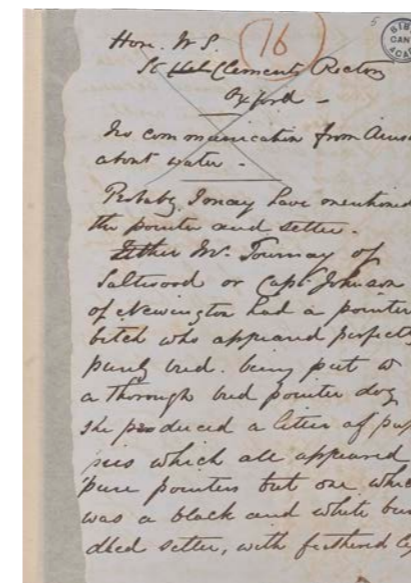 Hon. W S.
16
5
St Hel Clements Rectory
Oxford -
No communication from
about water -
Probably I may have mentioned
the pointer and setter -
Either Mr. Tournay of
Saltwood or Capt. Johnson
of Newington had a pointer
bitch who appeared perfectly
purely bred. being put to
a thorough bred pointer dog
she produced a litter of pup
pies which all appeared
pure pointers but one which
was a black and white bun
dled setter, with feathered